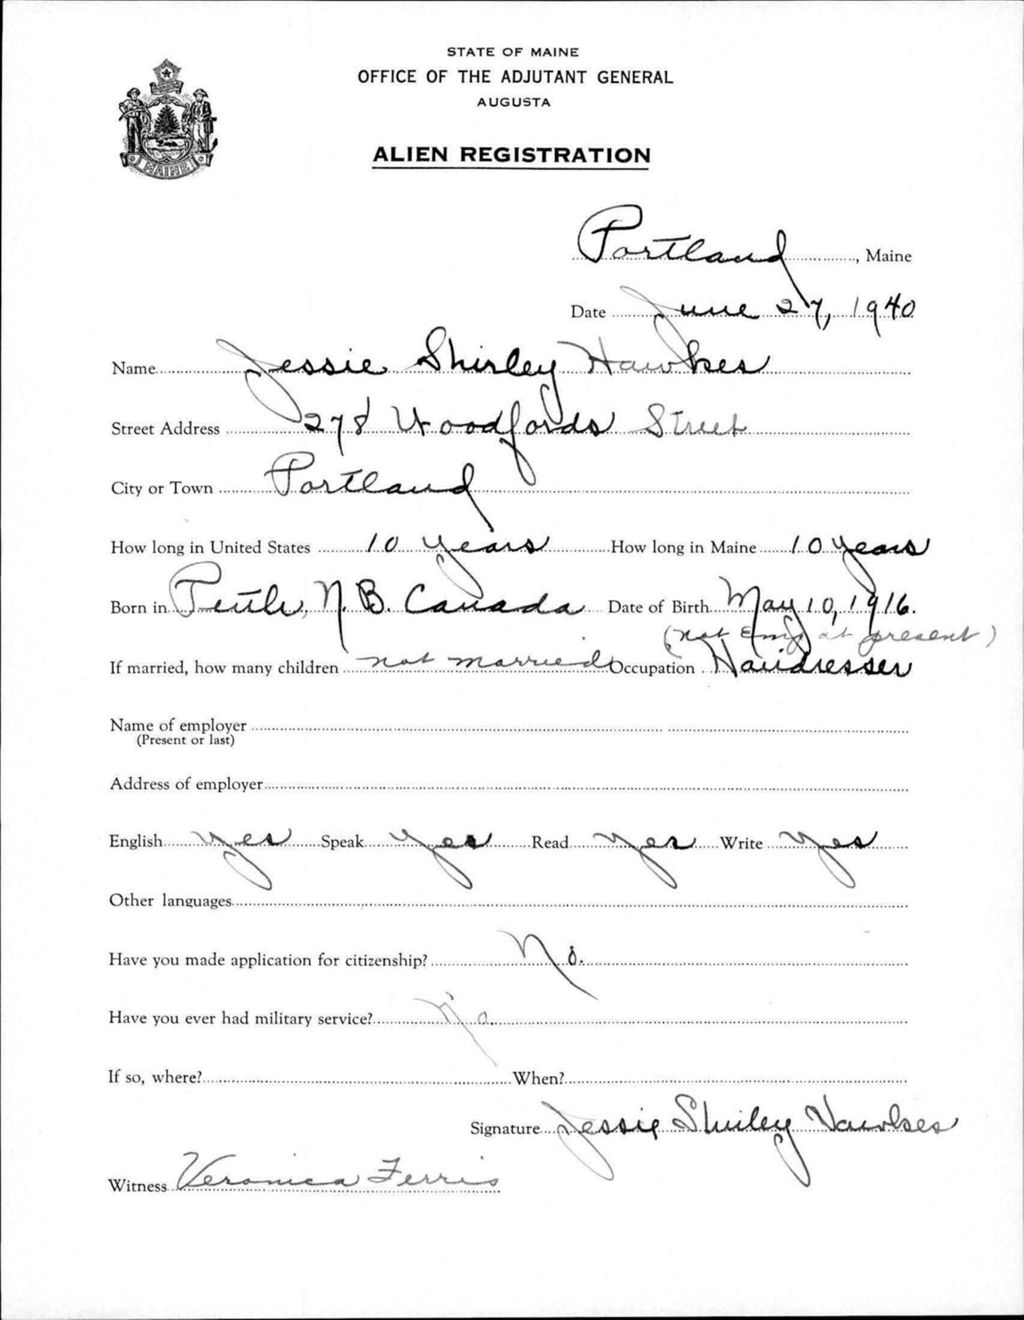 STATE OF MAINE
OFFICE OF THE ADJUTANT GENERAL
AUGUSTA
ALIEN REGISTRATION
MAINE
Portland, Maine
Date June 27, 1940
Name Jessie Shirley Hawkes
Street Address 278 Woodfords Street
City or Town Portland
How long in United States 10 years How long in Maine 10 years
Born in N.B. Canada Date of Birth May 10, 1916.
(not Emp at present)
If married, how many children not married Occupation Hairdresser
Name of employer
(Present or last)
Address of employer
English yes Speak yes Read yes Write yes
Other languages
Have you made application for citizenship? No.
Have you ever had military service? No.
If so, where? When?
Signature Jessie Shirley Hawkes
Witness Veronica Ferris